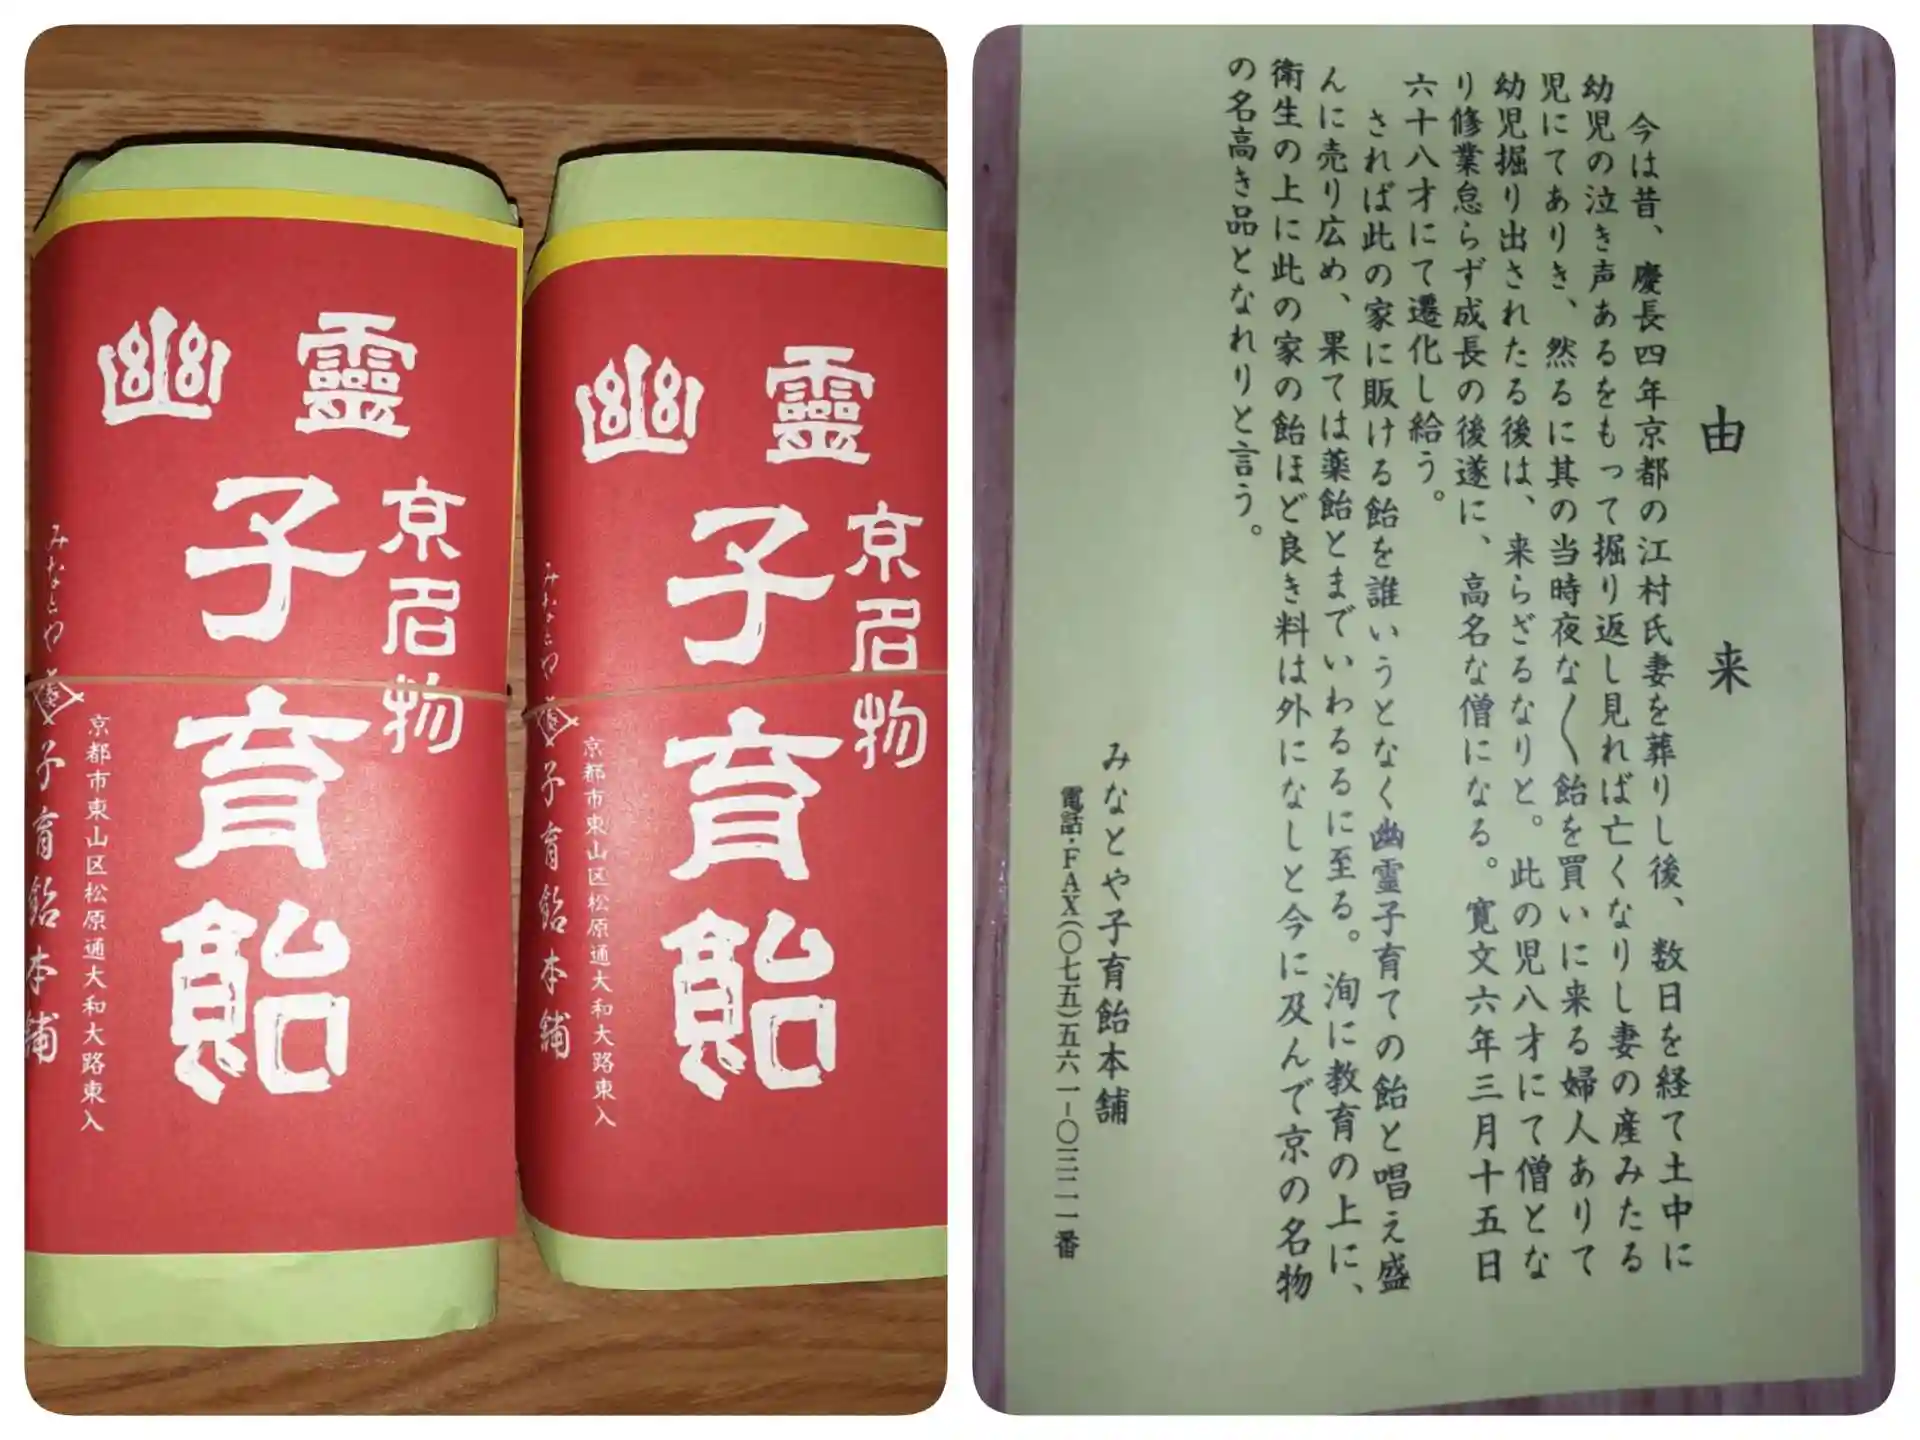 幽靈
子育飴
京名物
みなとや
子育飴本舗
京都市東山区松原通大和大路東入
幽靈
子育飴
京名物
みなとや
子育飴本舗
京都市東山区松原通大和大路東入
由来
今は昔、慶長四年京都の江村氏妻を葬りし後、数日を経て土中に
幼児の泣き声あるをもって掘り返し見れば亡くなりし妻の産みたる
児にてありき、然るに其の当時夜な〱飴を買いに来る婦人ありて
幼児掘り出されたる後は、来らざるなりと。此の児八才にて僧とな
り修業怠らず成長の後遂に、高名な僧になる。寛文六年三月十五日
六十八才にて遷化し給う。
されば此の家に販ける飴を誰いうとなく幽霊子育ての飴と唱え盛
んに売り広め、果ては薬飴とまでいわるるに至る。洵に教育の上に、
衛生の上に此の家の飴ほど良き料は外になしと今に及んで京の名物
の名高き品となれりと言う。
みなとや子育飴本舗
電話・FAX(〇七五)五六一-〇三二一番